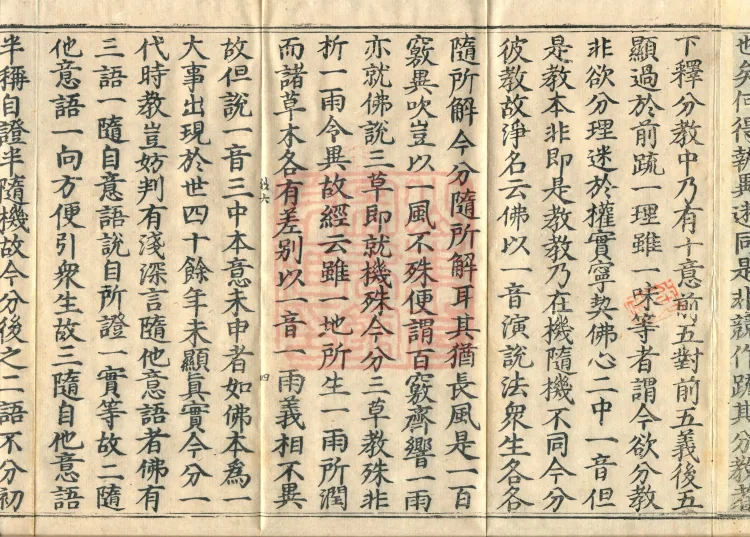 得執異迷同是非競作䟽其分教者
下釋分教中乃有十意前五對前五義後五
顯過於前䟽一理雖一味等者謂今欲分教
非欲分理迷於權實寧契佛心二中一音但
是教本非即是教教乃在機隨機不同今分
彼教故淨名云佛以一音演說法衆生各各
隨所解今分隨所解耳其猶長風是一百
竅異吹豈以一風不殊便謂百竅齊響一雨
亦就佛說三草即就機殊今分三草教殊非
析一雨令異故經云雖一地所生一雨所潤
而諸草木各有差別以一音一雨義相不異
六 四
故但說一音三中本意未申者如佛本為一
大事出現於世四十餘年未顯真實今分一
代時教豈妨判有淺深言隨他意語者佛有
三語一隨自意語說自所證一實等故二隨
他意語一向方便引衆生故三隨自他意語
半稱自證半隨機故今分後之二語不分初